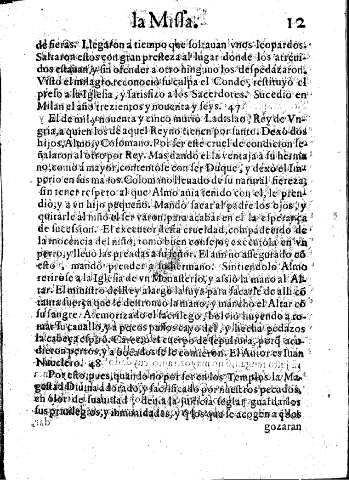 la Missa. 12
de fieras. Llegaron a tiempo que soltauan vnos leopardos.
Saltaron estos con gran presteza al lugar donde los atreui-
dos estauan, y sin ofender a otro ninguno los despedaçaron.
Visto el milagro reconocio su culpa el Conde, restituyò el
preso a la Iglesia, y satisfizo a los Sacerdotes. Sucedio en
Milan el año trezientos y nouenta y seys. 47
El de mil y nouenta y cinco murio Ladislao, Rey de Vn-
gria, a quien los de aquel Reyno tienen por santo. Dexò dos
hijos, Almo, y Colomano. Por ser este cruel de condicion se-
ñalaron al otro por Rey. Mas dando el la ventaja a su herma
no, como à mayor, contentose con ser Duque, y dexò el Im-
perio en sus manos. Colomano lleuado de su natural fiereza,
sin tener respeto al que Almo auia tenido con el, le pren-
dio, y a vn hijo pequeño. Mandò sacar al padre los ojos, y
quitarle al niño el ser varon, para acabar en el la esperança
de sucession. El executor desta crueldad, compadecido de
la inocencia del niño, tomò buen consejo, executola en vn
perro, y lleuò las prendas a su señor. El aun no assegurado cõ
esto, mandò prender a su hermano. Sintiendolo Almo
retirose a la Iglesia de vn Monasterio, y asio la mano al Al-
tar. El ministro della y alargò la suya para sacarle de alli cõ
tanta fuerça que le destroncò la mano, y manchò el Altar cõ
su sangre. Atemorizado el sacrilego, boluio huyendo a to-
mar su cauallo, y a pocos passos cayò del, y hecha pedaços
la cabeça espirò. Carecio el cuerpo de sepultura, porq̃ acu-
dieron perros, y a bocados se le comieron. El Autor es Iuan
Nauclero. 48
Por esto, pues, quando no por ser en los Templos la Ma-
gestad Diuina adorado, y sacrificado por nuestros pecados,
en olor de suauidad deue la justicia seglar guardarlos
sus priuilegios, y inmunidades, y q̃ los que se acogen a ellos
gozaran